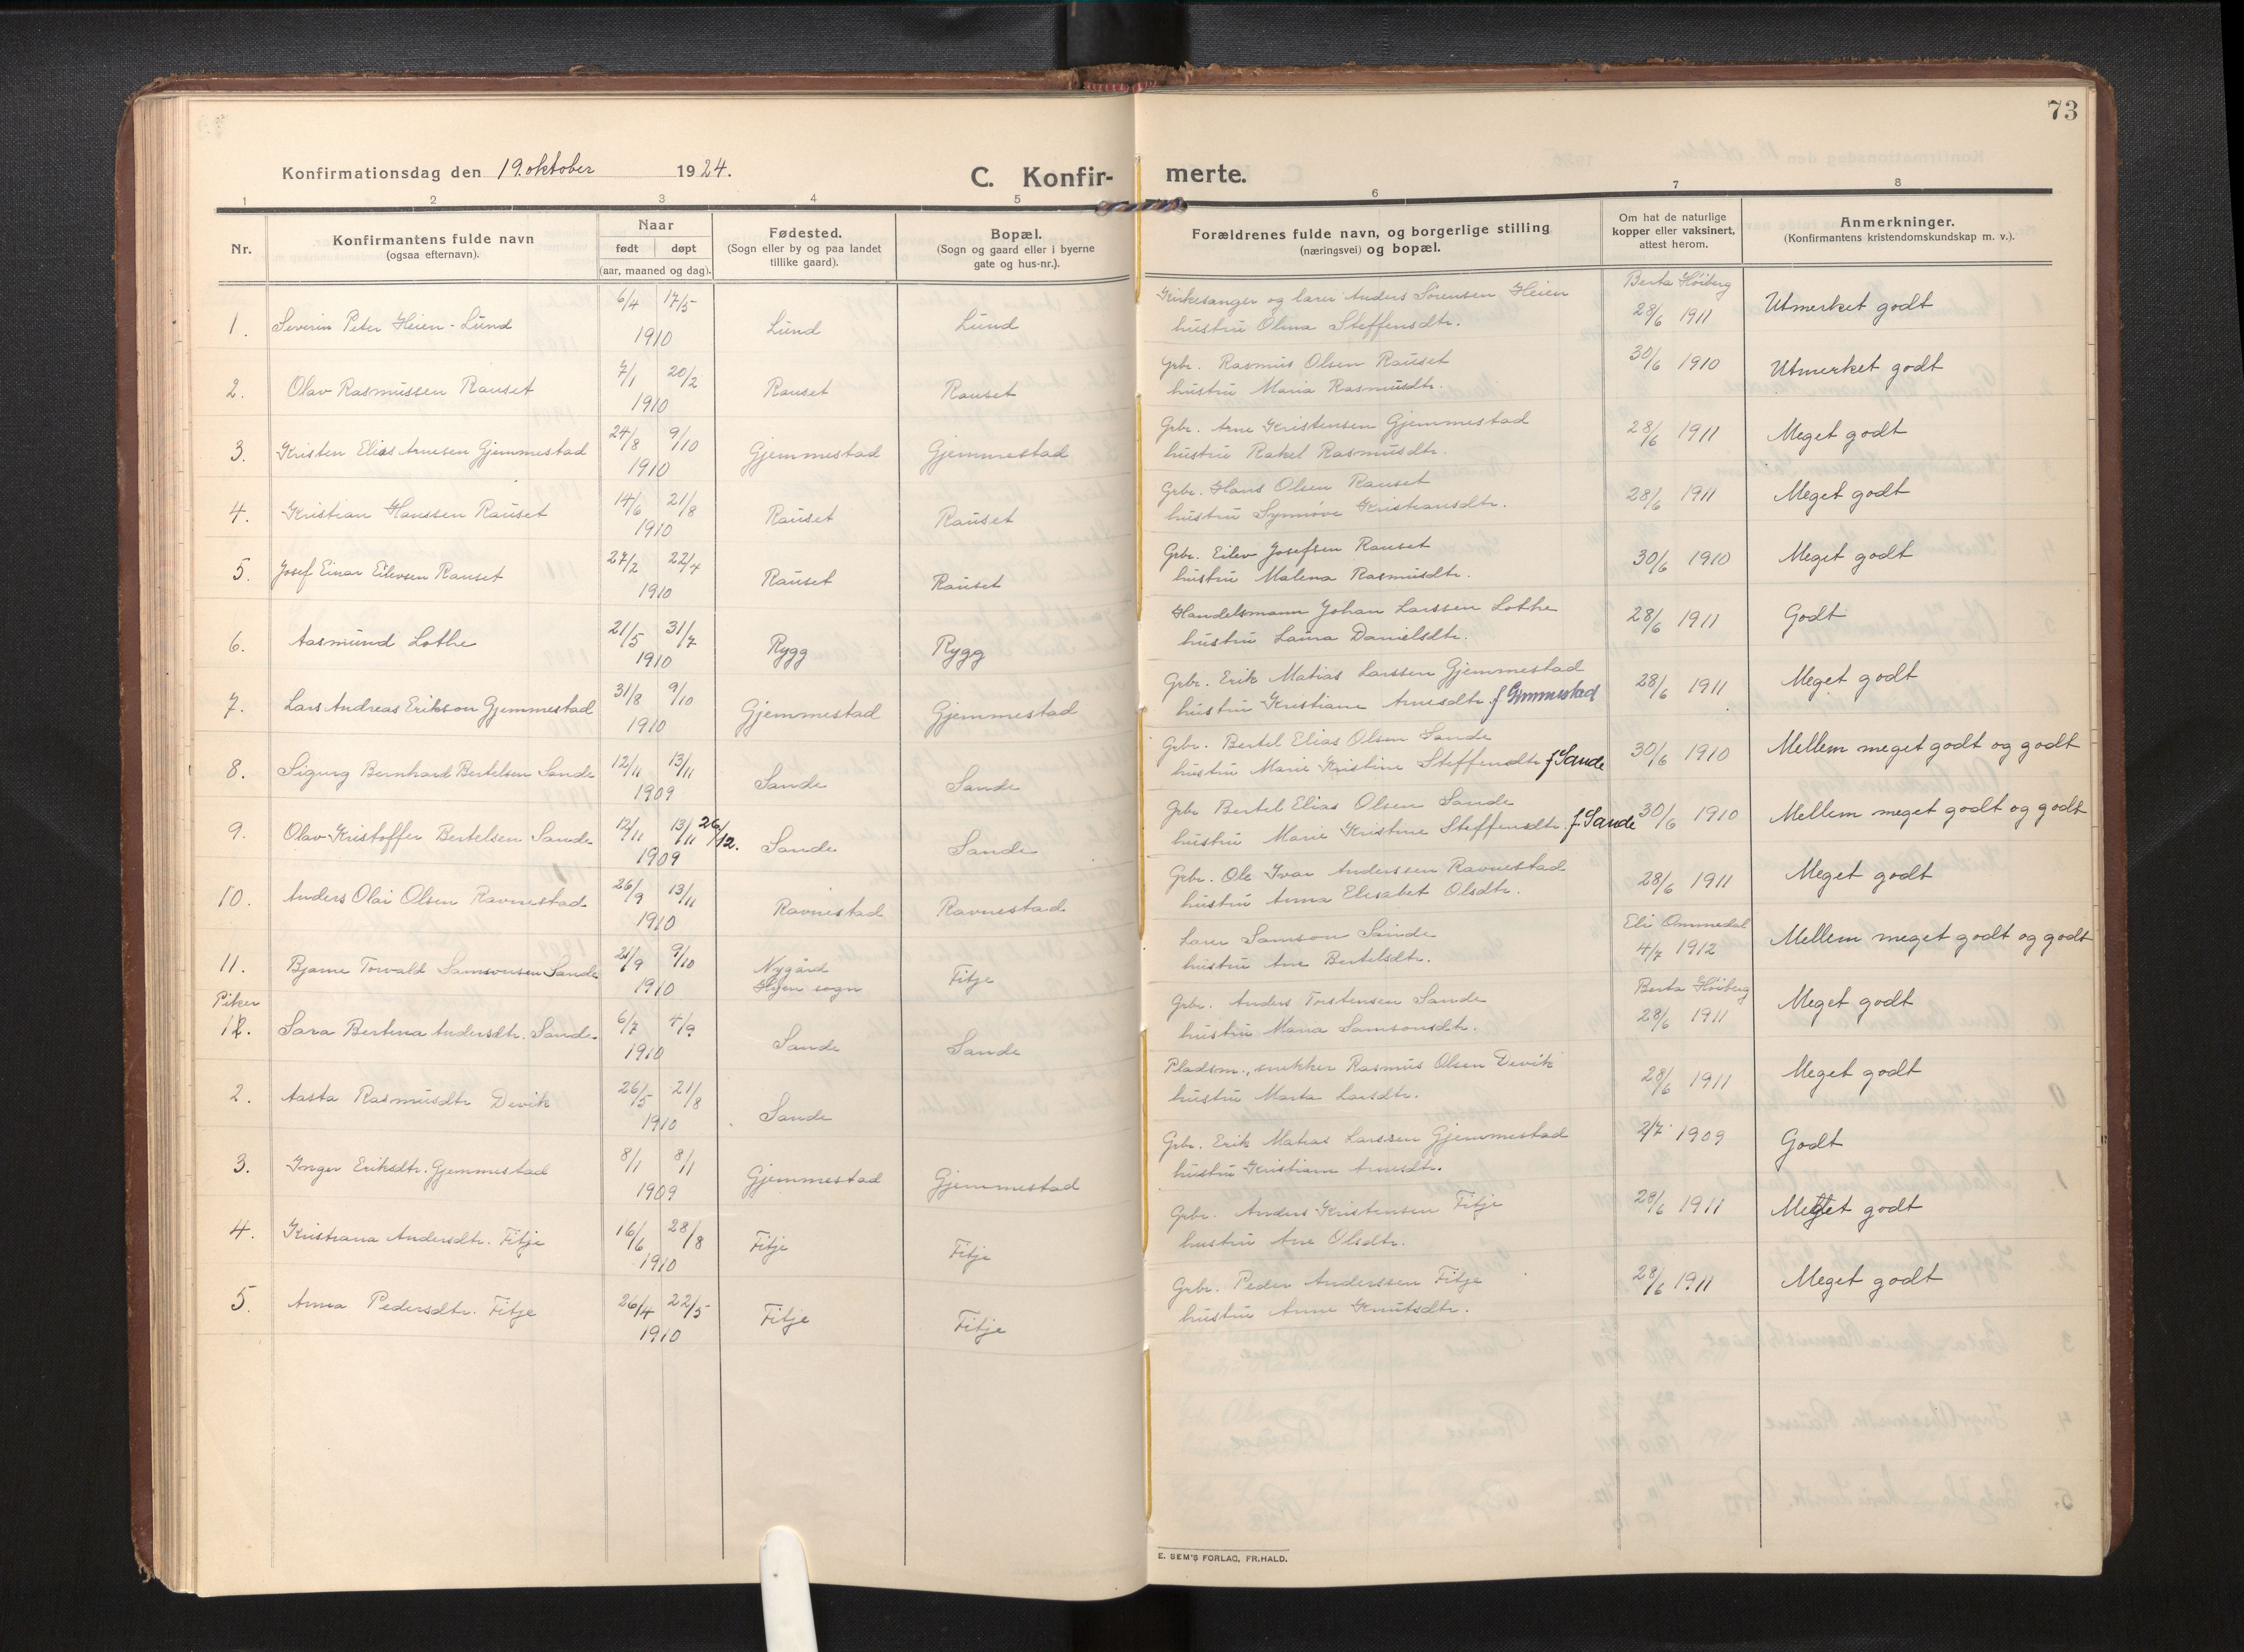 73
Konfirmationsdag den 19. oktober 1924.
C. Konfir- merte.
1 2 3 4 5 6 7 8
Nr.
Konfirmantens fulde navn
(ogsaa efternavn).
Naar
født døpt
(aar, maaned og dag).
Fødested.
(Sogn eller by og paa landet
tillike gaard).
Bopæl.
(Sogn og gaard eller i byerne
gate og hus-nr.).
Forældrenes fulde navn, og borgerlige stilling
(næringsvei) og bopæl.
Om hat de naturlige
kopper eller vaksinert,
attest herom.
Anmerkninger.
(Konfirmantens kristendomskundskap m. v.).
1. Severin Peter Heien-Lund 6/4 17/5 1910 Lund Lund
Kirkesanger og lærer Anders Sørensen Heien
hustru Olina Steffensdtr.
Berta Høiberg
28/6 1911 Utmerket godt
2. Olav Rasmussen Rauset 7/1 20/2 1910 Rauset Rauset
Grbr. Rasmus Olsen Rauset
hustru Maria Rasmusdtr.
30/6 1910 Utmerket godt
3. Kristen Elias Arnesen Gjemmestad 24/8 9/10 1910 Gjemmestad Gjemmestad
Grbr. Arne Kristensen Gjemmestad
hustru Rakel Rasmusdtr.
28/6 1911 Meget godt
4. Kristian Hanssen Rauset 14/6 21/8 1910 Rauset Rauset
Grbr. Hans Olsen Rauset
hustru Synnøve Kristiansdtr.
28/6 1911 Meget godt
5. Josef Einar Eilevsen Rauset 27/2 22/4 1910 Rauset Rauset
Grbr. Eilev Josefsen Rauset
hustru Malena Rasmusdtr.
30/6 1910 Meget godt
6. Aasmund Lothe 21/5 31/7 1910 Rygg Rygg
Handelsmann Johan Larssen Lothe
hustru Laura Danielsdtr.
28/6 1911 Godt
7. Lars Andreas Erikson Gjemmestad 31/8 9/10 1910 Gjemmestad Gjemmestad
Grbr. Erik Matias Larssen Gjemmestad
hustru Kristiane Arnesdtr. f Gimmestad
28/6 1911 Meget godt
8. Sigurg Bernhard Bertelsen Sande 12/11 13/11 1909 Sande Sande
Grbr. Bertel Elias Olsen Sande
hustru Marie Kristine Steffensdtr f Sande
30/6 1910 Mellem meget godt og godt
9. Olav Kristoffer Bertelsen Sande 12/11 13/11 26/12. 1909 Sande Sande
Grbr Bertel Elias Olsen Sande
hustru Marie Kristine Steffensdtr. f. Sande
30/6 1910 Mellem meget godt og godt
10. Anders Olai Olsen Ravnestad 26/9 13/11 1910 Ravnestad Ravnestad
Grbr. Ole Ivar Anderssen Ravnestad
hustru Anna Elisabet Olsdtr.
28/6 1911 Meget godt
11. Bjarne Torvald Samsonsen Sande 21/9 9/10 1910 Nygård
Hyen sogn Fitje
Lærer Samson Sande
hustru Ane Bertelsdtr.
Eli Ommedal
4/7 1912 Mellem meget godt og godt
Piker
12. Sara Bertina Andersdtr. Sande. 6/7 4/9 1910 Sande Sande
Grbr. Anders Torstensen Sande
hustru Maria Samsonsdtr.
Berta Høiberg
28/6 1911 Meget godt
2. Aasta Rasmusdtr Devik 26/5 21/8 1910 Sande
Pladsm., snekker Rasmus Olsen Devik
hustru Marta Larsdtr.
28/6 1911 Meget godt
3. Inger Eriksdtr. Gjemmestad 8/1 8/1 1909 Gjemmestad Gjemmestad
Grbr. Erik Matias Larssen Gjemmestad
hustru Kristiane Arnesdtr.
2/7 1909 Godt
4. Kristiana Andersdtr. Fitje 16/6 28/8 1910 Fitje Fitje
Grbr. Anders Kristensen Fitje
hustru Ane Olsdtr.
28/6 1911 Meget godt
5. Anna Pedersdtr. Fitje 26/4 22/5 1910 Fitje Fitje
Grbr. Peder Anderssen Fitje
hustru Anne Knutsdtr.
28/6 1911 Meget godt
E. SEM'S FORLAG, FR.HALD.